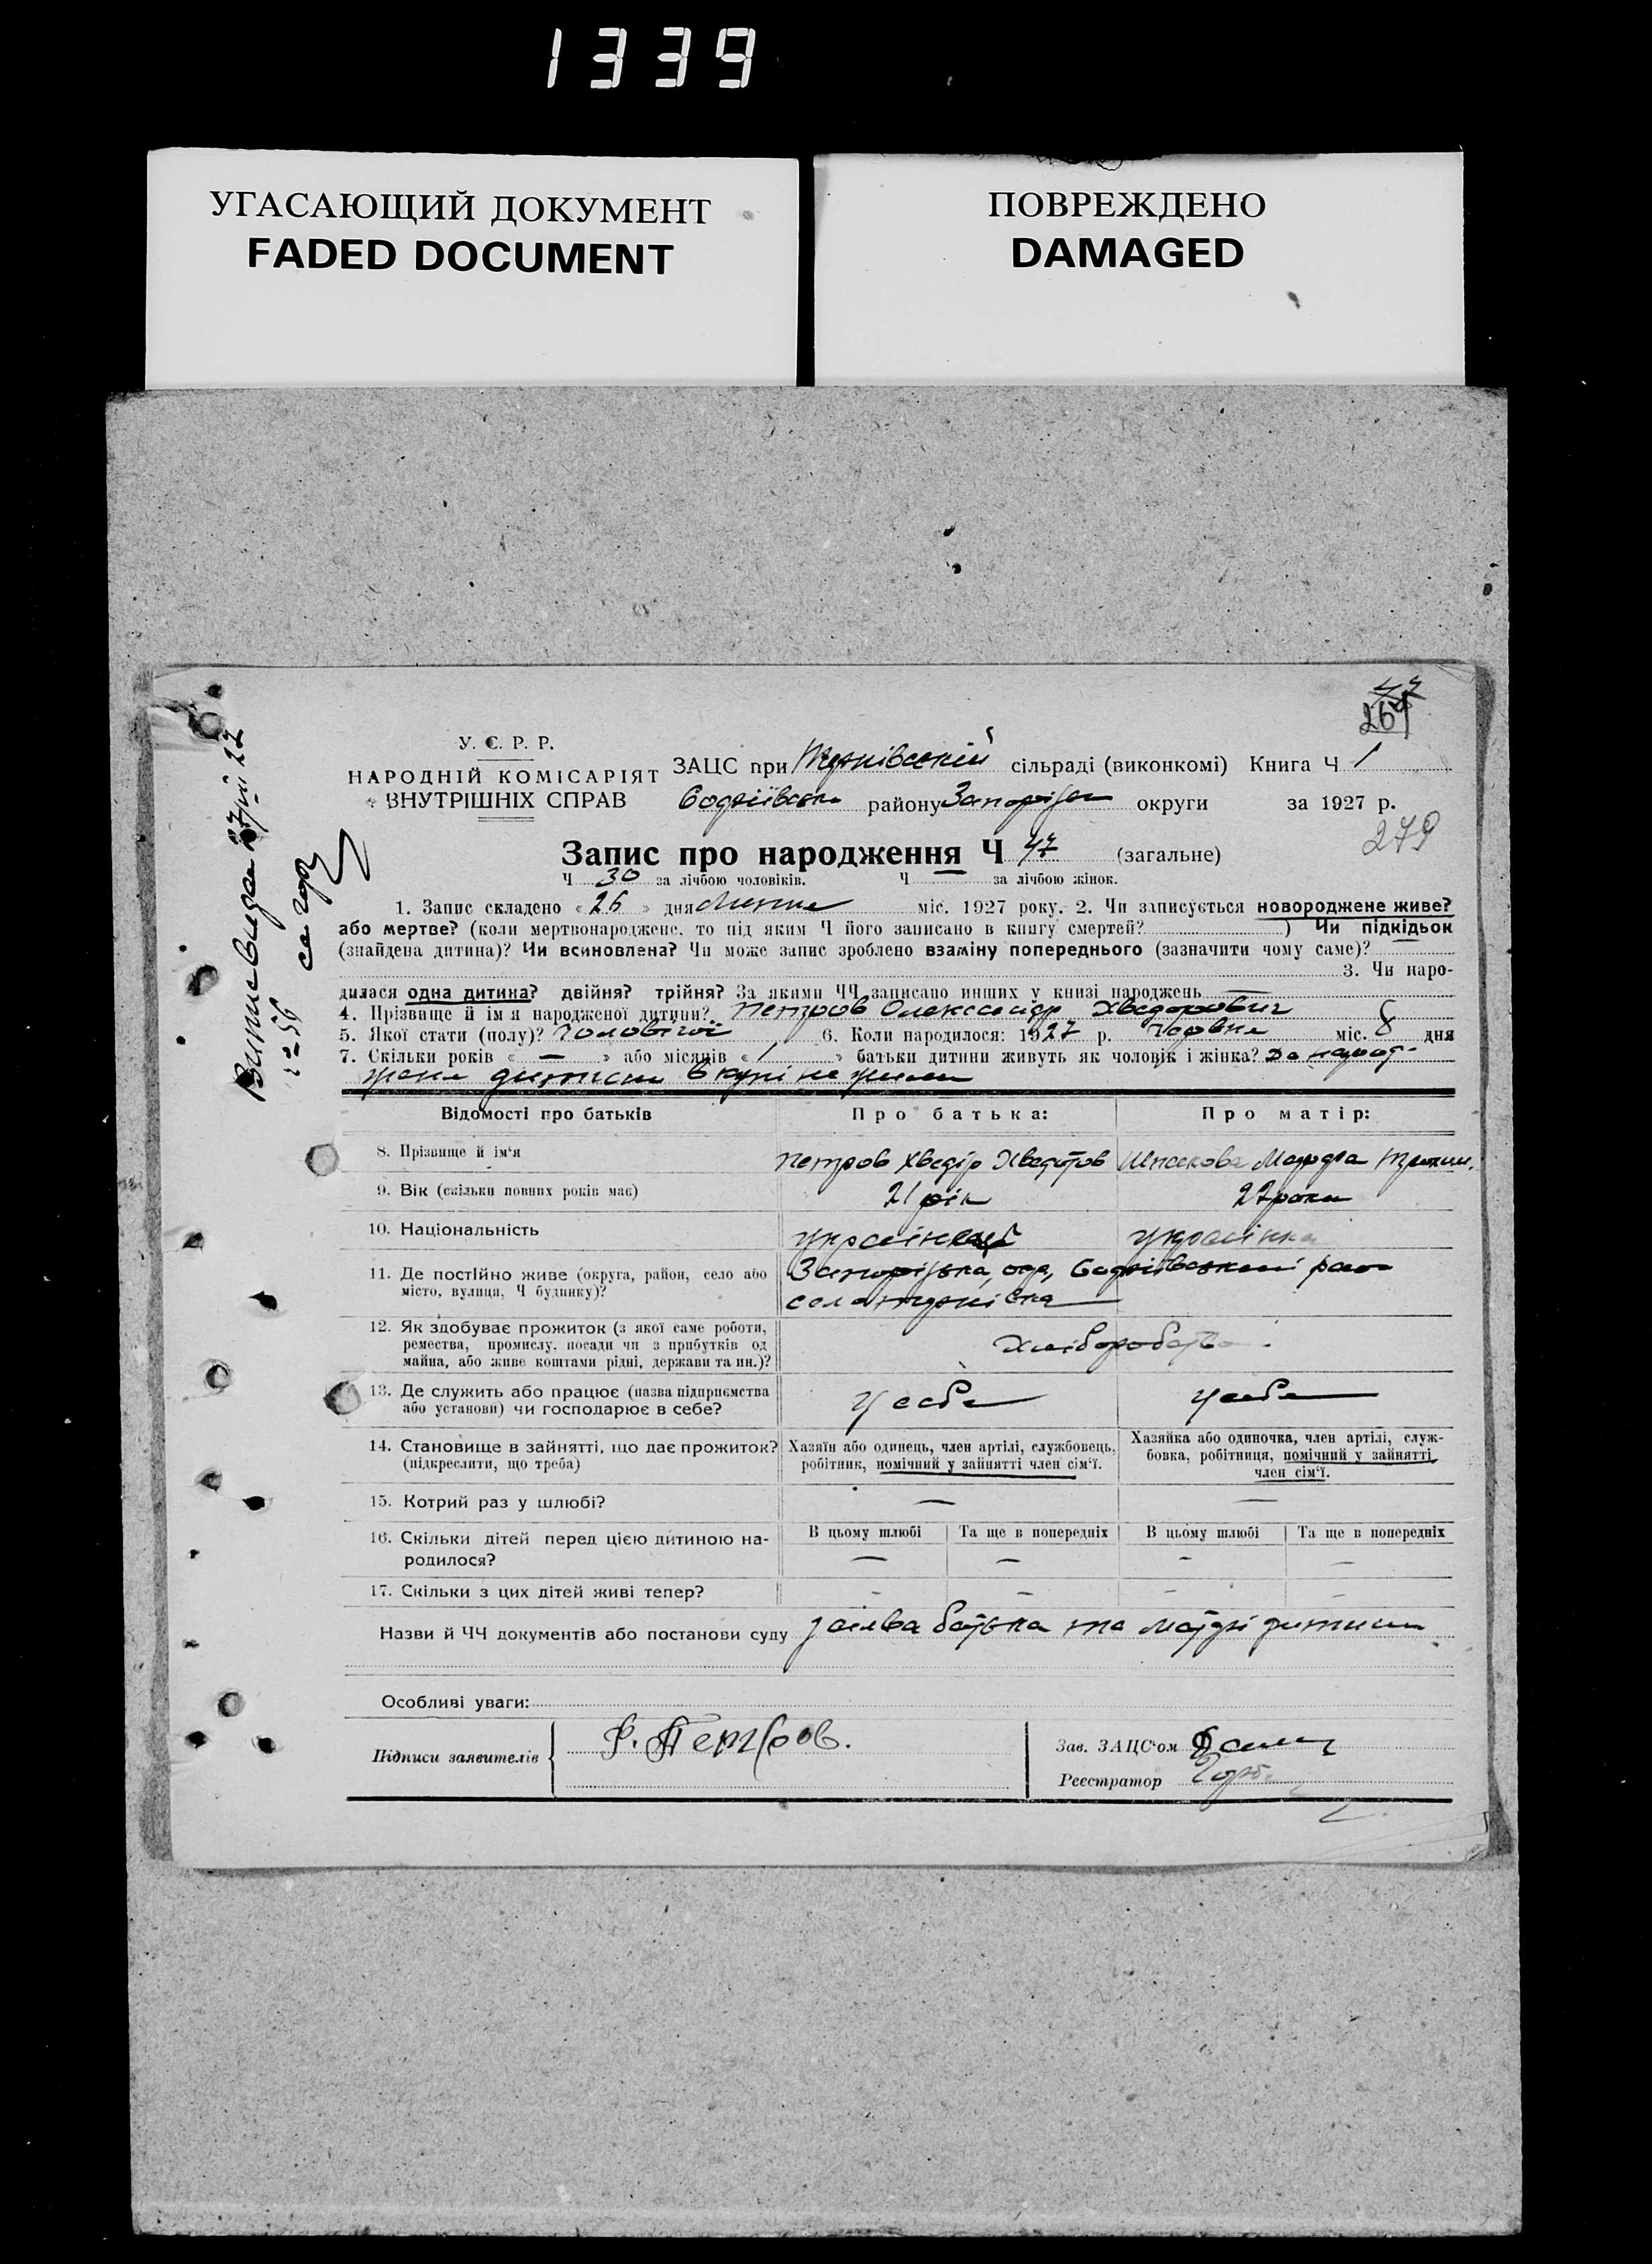 1339
УГАСАЮЩИЙ ДОКУМЕНТ
FADED DOCUMENT
ПОВРЕЖДЕНО
DAMAGED
47
269
У. С. Р. Р.
НАРОДНІЙ КОМІСАРІЯТ
ВНУТРІШНІХ СПРАВ
ЗАЦС при сільраді (виконкомі) Книга Ч 1
району округи за 1927 р.
279
Запис про народження Ч 47 (загальне)
Ч 30 за лічбою чоловіків. Ч за лічбою жінок.
1. Запис складено « 26 » дня міс. 1927 року. 2. Чи записується новороджене живе?
або мертве? (коли мертвонароджене, то під яким Ч його записано в книгу смертей? ) Чи підкідьок
(знайдена дитина)? Чи всиновлена? Чи може запис зроблено взаміну попереднього (зазначити чому саме)?
3. Чи наро-
дилася одна дитина? двійня? трійня? За якими ЧЧ записано инших у книзі народжень —
4. Прізвище й ім'я народженої дитини? Петров Олександр Хведорович
5. Якої стати (полу)? 6. Коли народилося: 1927 р. Червня міс. 8 дня
7. Скільки років « — » або місяців « 1 » батьки дитини живуть як чоловік і жінка? До народ-
ження дитини вкупі не жили
Відомості про батьків Про батька: Про матір:
8. Прізвище й ім'я Петров Хведір
9. Вік (скільки повних років має) 21 рік 22 роки
10. Національність українець українка
11. Де постійно живе (округа, район, село або
місто, вулиця, Ч будинку)?
12. Як здобуває прожиток (з якої саме роботи,
ремества, промислу, посади чи з прибутків од
майна, або живе коштами рідні, держави та ин.)?
Хліборобство
13. Де служить або працює (назва підприємства
або установи) чи господарює в себе?
у себе у себе
14. Становище в зайнятті, що дає прожиток?
(підкреслити, що треба)
Хазяїн або одинець, член артілі, службовець,
робітник, помічний у зайнятті член сім'ї.
Хазяйка або одиночка, член артілі, служ-
бовка, робітниця, помічний у зайнятті
член сім'ї.
15. Котрий раз у шлюбі? — —
16. Скільки дітей перед цією дитиною на-
родилося?
В цьому шлюбі Та ще в попередніх В цьому шлюбі Та ще в попередніх
— — — —
17. Скільки з цих дітей живі тепер? — — — —
Назви й ЧЧ документів або постанови суду заява батька та матірі дитини
Особливі уваги:
Підписи заявителів Ф. Петров.
Зав. ЗАЦС'ом
Реєстратор